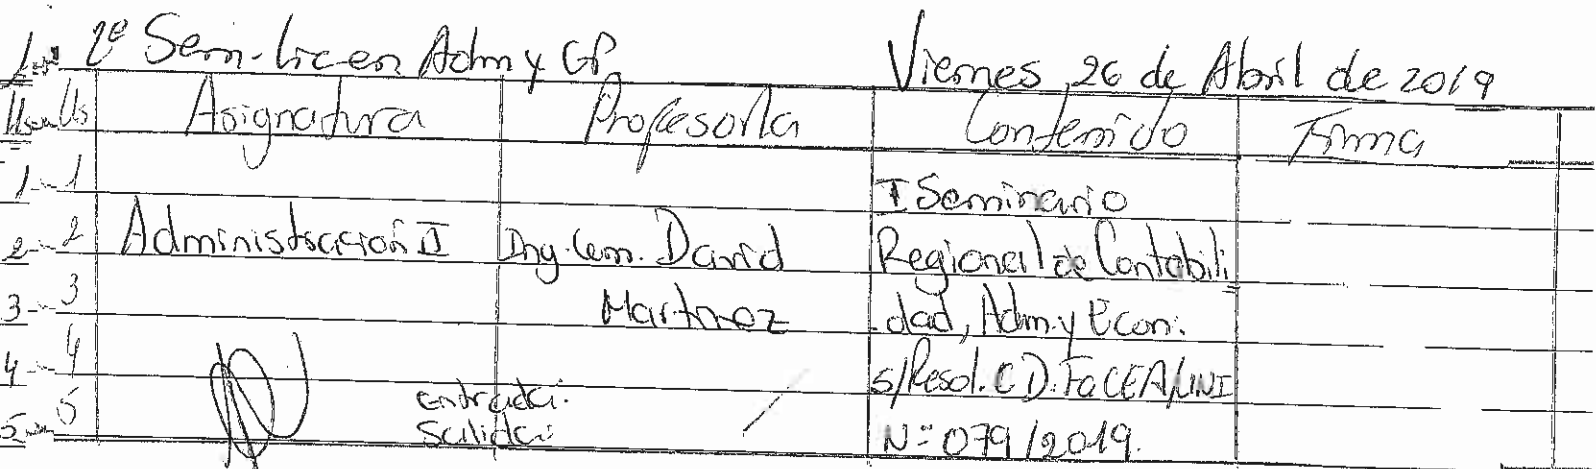 2º Sem-Lic en Adm y GP Viernes, 26 de Abril de 2019
Asignatura Profesor/a Contenido Firma
1 - 1 I Seminario
2 - 2 Administración II Ing. Com. David Regional de Contabili
3 - 3 Martinez dad, Adm. y Econ.
4 - 4 s/Resol. CD. FaCEA/UNI
5 - 5 entrada: N=079/2019.
salida: